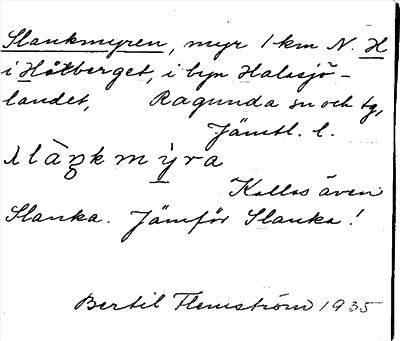 Slankmyren, myr 1 km N. H
i Håtberget, i byn Halasjö-
landet, Ragunda sn och tg,
Jämtl. l.
slàŋkmỳra
Kallas även
Slanka. Jämför Slanka!
Bertil Flemström 1935